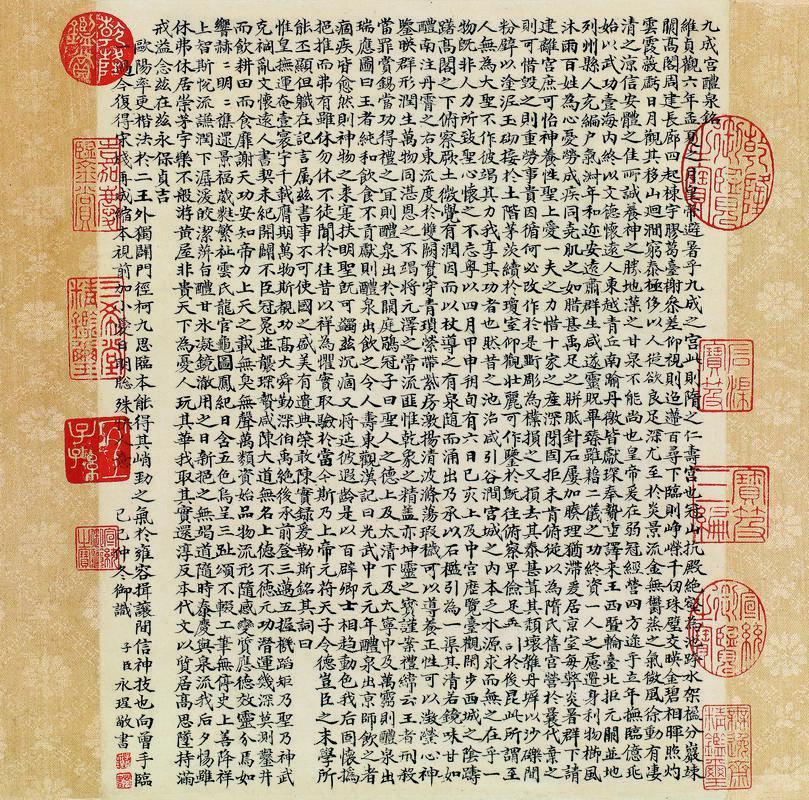 九成宮醴泉銘
維貞觀六年孟夏之月皇帝避暑乎九成之宮此則隋之仁壽宮也冠山抗殿絕壑為池跨水架楹分巖竦
闕高閣周建長廊四起棟宇膠葛臺榭參差仰視則迢遞百尋下臨則崢嶸千仞珠璧交映金碧相暉照灼
雲霞蔽虧日月觀其移山迴澗窮泰極侈以人從欲良足深尤至於炎景流金無鬱蒸之氣微風徐動有淒
清之涼信安體之佳所誠養神之勝地漢之甘泉不能尚也皇帝爰在弱冠經營四方逮乎立年撫臨億兆
始以武功壹海內終以文德懷遠人東越青丘南踰丹徼皆獻琛奉贄重譯來王西暨輪臺北拒玄闕並地
列州縣人充編戶氣淑年和邇安遠肅群生咸遂靈貺畢臻雖藉二儀之功終資一人之慮遺身利物櫛風
沐雨百姓為心憂勞成疾同堯肌之如腊甚禹足之胼胝針石屢加腠理猶滯爰居京室每弊炎暑群下請
建離宮庶可怡神養性聖上愛一夫之力惜十家之產深閉固拒未肯俯從以為隋氏舊宮營於曩代棄之
則可惜毀之則重勞事貴因循何必改作於是斲彫為樸損之又損去其泰甚葺其頹壞雜丹墀以沙礫間
粉壁以塗泥玉砌接於土階茅茨續於瓊室仰觀壯麗可作鑒於既往俯察卑儉足垂訓於後昆此所謂至
人無為大聖不作彼竭其力我享其功者也然昔之池沼咸引谷澗宮城之內本乏水源求而無之在乎一
物既非人力所致聖心懷之不忘粵以四月甲申朔旬有六日己亥上及中宮歷覽臺觀閑步西城之陰躊
躇高閣之下俯察厥土微覺有潤因而以杖導之有泉隨而涌出乃承以石檻引為一渠其清若鏡味甘如
醴南注丹霄之右東流度於雙闕貫穿青瑣縈帶紫房激揚清波滌蕩瑕穢可以導養正性可以澂瑩心神
鑒映群形潤生萬物同湛恩之不竭將元澤之常流匪惟乾象之精蓋亦坤靈之寶謹案禮緯云王者刑殺
當罪賞錫當功得禮之宜則醴泉出於闕庭鶡冠子曰聖人之德上及太清下及太寧中及萬靈則醴泉出
瑞應圖曰王者純和飲食不貢獻則醴泉出飲之令人壽東觀漢記曰光武中元元年醴泉出京師飲之者
痼疾皆愈然則神物之來寔扶明聖既可蠲茲沉痼又將延彼遐齡是以百辟卿士相趨動色我后固懷撝
挹推而弗有雖休勿休不徒聞於往昔以祥為懼實取驗於當今斯乃上帝元符天子令德豈臣之末學所
能丕顯但職在記言屬茲書事不可使國之盛美有遺典策敢陳實錄爰勒斯銘其詞曰
惟皇撫運奄壹寰宇千載膺期萬物斯覩功高大舜勤深伯禹絕後承前登三邁五握機蹈矩乃聖乃神武
克禍亂文懷遠人書契未紀開闢不臣冠冕並襲琛贄咸陳大道無名上德不德元功潛運幾深莫測鑿井
而飲耕田而食靡謝天功安知帝力上天之載無臭無聲萬類資始品物流形隨感變質應德效靈介焉如
響赫二明二雜遝景福葳蕤繁祉雲氏龍官龜圖鳳紀日含五色烏呈三趾頌不輟工筆無停史上善降祥
上智斯悅流謙潤下潺湲皎潔蓱旨醴甘冰凝鏡澈用之日新挹之無竭道隨時泰慶與泉流我后夕惕雖
休弗休居崇茅宇樂不般游黃屋非貴天下為憂人玩其華我取其實還淳反本代文以質居高思墜持滿
戒溢念茲在茲永保貞吉
歐陽率更楷法於二王外獨闢門徑柯九思臨本能得其峭勁之氣於雍容揖讓間信神技也向曾手臨
一過今復得宋棧再成縮本視前加小 自明 殊 己巳仲冬御識
子臣永瑆敬書
乾隆御覽之寶
乾隆鑑賞
嘉慶鑑賞
三希堂精鑑璽
宜子孫
石渠寶笈
寶笈三編
宣統御覽之寶
無逸齋精鑑璽
宣統鑑賞